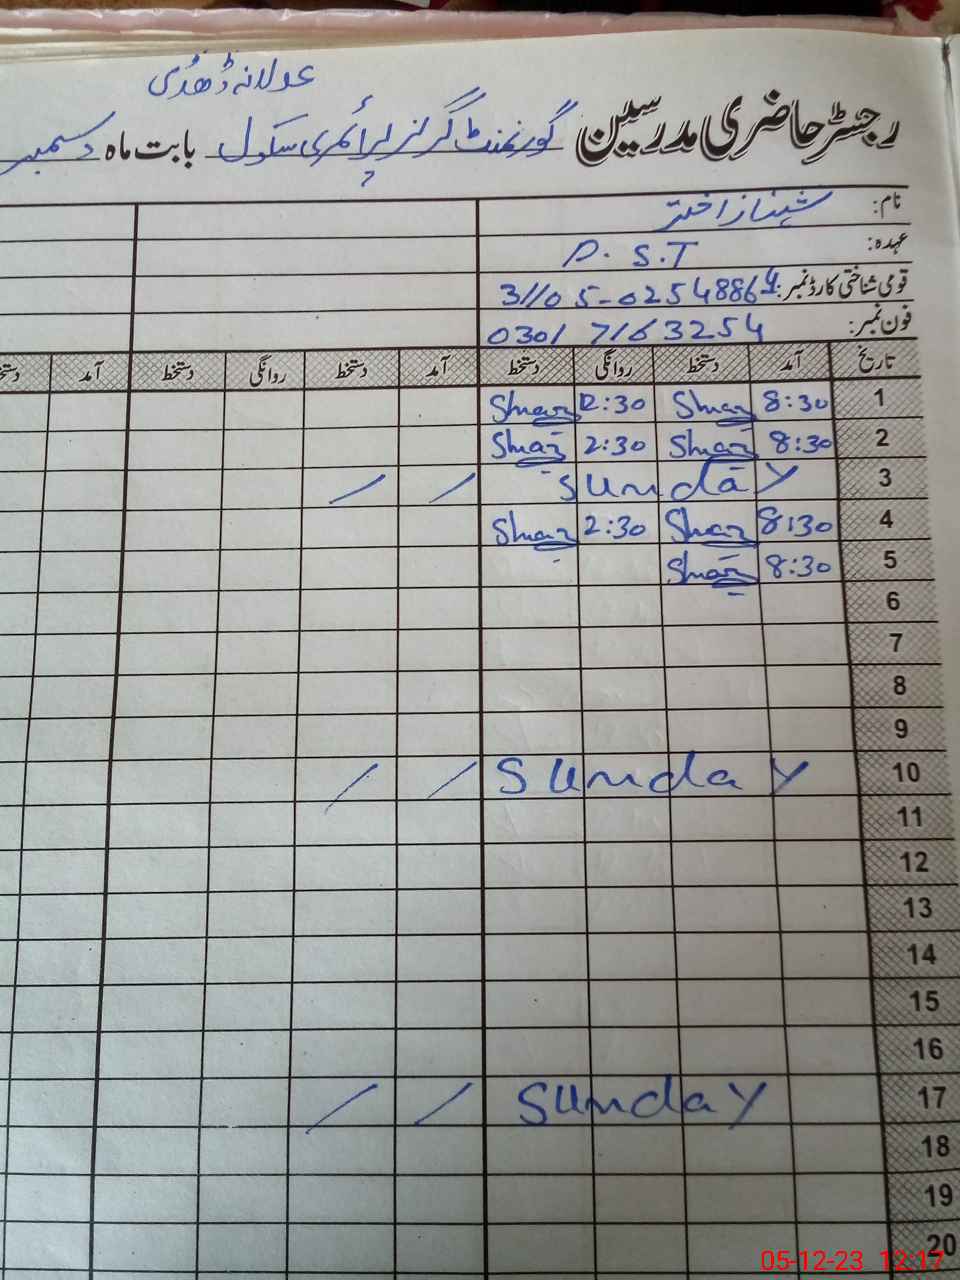 رجسٹر حاضری مدرسین گورنمنٹ گرلز پرائمری سکول بابت ماہ دسمبر
نام: شہناز اختر
عہدہ: P.S.T
قومی شناختی کارڈ نمبر: 31105-0254886
فون نمبر: 0301 7163254
تاریخ آمد دستخط روانگی دستخط آمد دستخط روانگی دستخط آمد
1 8:30 Shnaz 2:30 Shnaz
2 8:30 Shnaz 2:30 Shnaz
3 Sunday / /
4 8:30 Shnaz 2:30 Shnaz
5 8:30 Shnaz
6
7
8
9
10 Sunday / /
11
12
13
14
15
16
17 Sunday / /
18
19
20
05-12-23 12:17